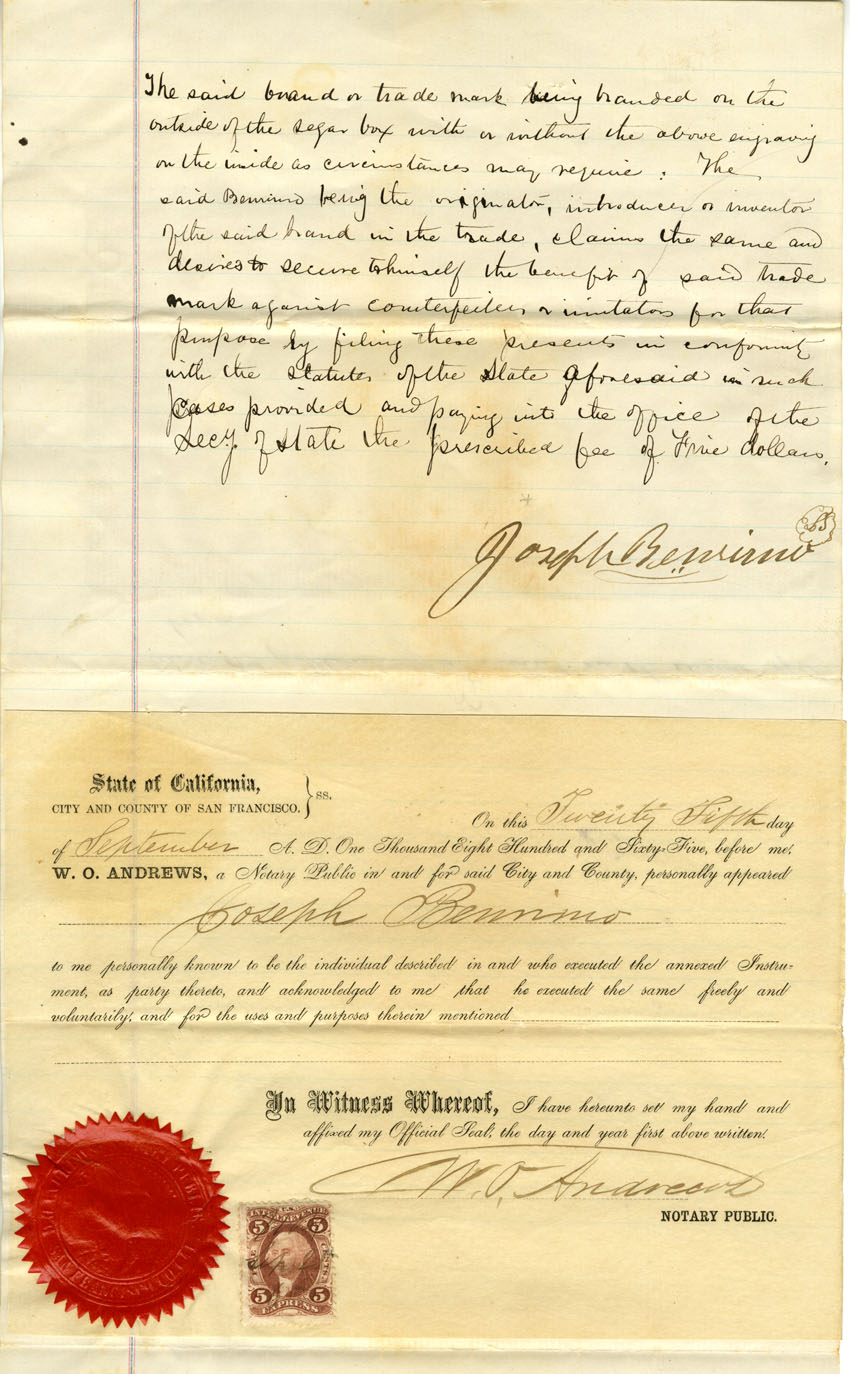 The said brand or trade mark being branded on the
outside of the segar box with or without the above engraving
on the inside as circumstances may require. The
said Benrimo being the originator, introducer or inventor
of the said brand in the trade, claims the same and
desires to secure to himself the benefit of said trade
mark against counterfeiters or imitators for that
purpose by filing these presents in conformity
with the statutes of the State aforesaid in such
cases provided and paying into the office of the
Secy. of State the prescribed fee of Five dollars.
Joseph Benrimo
LS
State of California,
CITY AND COUNTY OF SAN FRANCISCO. } ss.
On this Twenty Fifth day
of September A. D. One Thousand Eight Hundred and Sixty-Five, before me,
W. O. ANDREWS, a Notary Public in and for said City and County, personally appeared
Joseph Benrimo
to me personally known to be the individual described in and who executed the annexed Instru-
ment, as party thereto, and acknowledged to me that he executed the same freely and
voluntarily, and for the uses and purposes therein mentioned
In Witness Whereof, I have hereunto set my hand and
affixed my Official Seal, the day and year first above written.
W. O. Andrews
NOTARY PUBLIC.
U.S.
INTER. REVENUE
5 5
FIVE CENTS
5 5
EXPRESS
SAN FRANCISCO